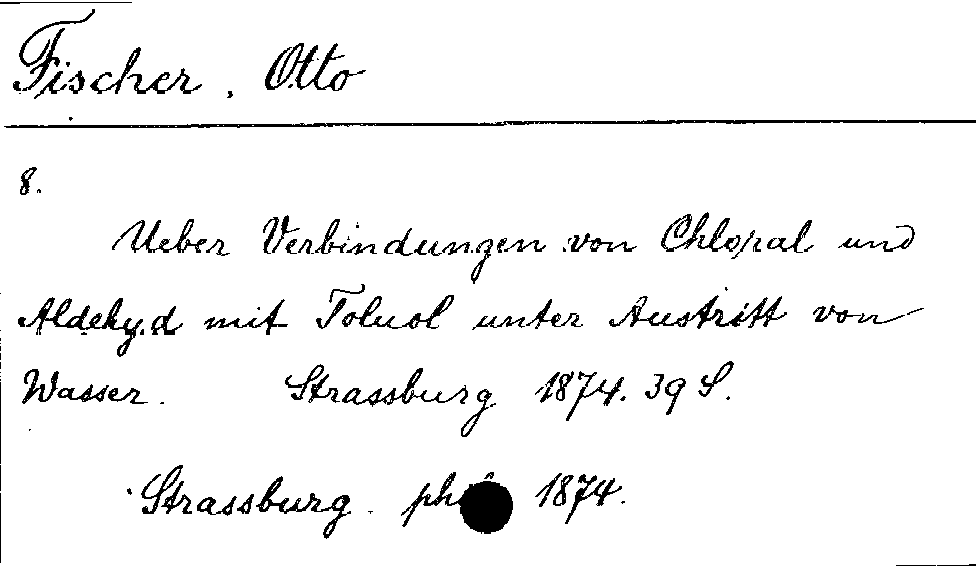 Fischer, Otto
8.
Ueber Verbindungen von Chloral und
Aldehyd mit Toluol unter Austritt von
Wasser. Strassburg 1874. 39 S.
Strassburg. 1874.